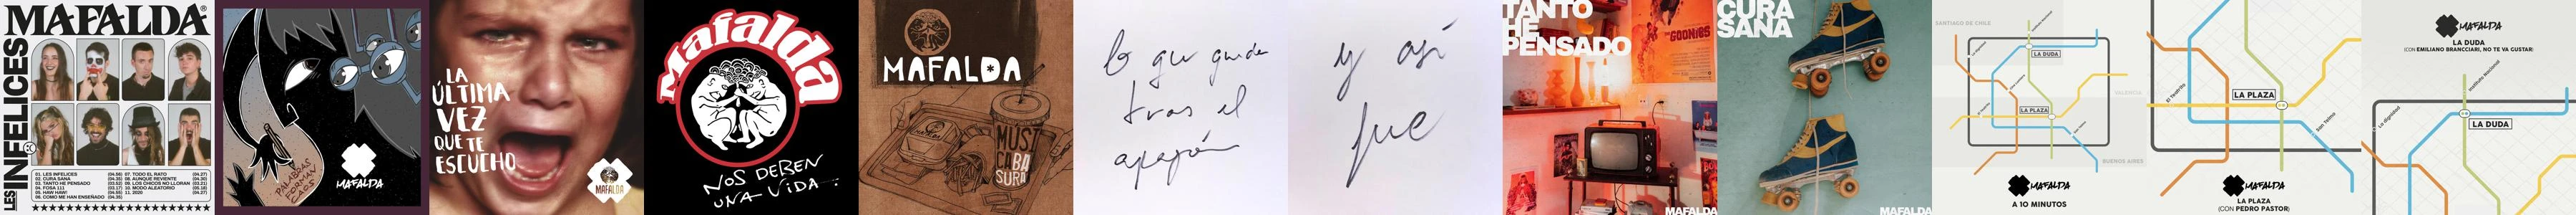 MAFALDA®
LES INFELICES
01. LES INFELICES (04.56)
02. CURA SANA (04.35)
03. TANTO HE PENSADO (03.52)
04. FOSA 111 (03.17)
05. HAW HAW! (04.55)
06. COMO ME HAN ENSEÑADO (04.35)
07. TODO EL RATO (04.27)
08. AUNQUE REVIENTE (04.30)
09. LOS CHICOS NO LLORAN (03.21)
10. MODO ALEATORIO (05.18)
11. 2020 (04.27)
PALABRAS
FORMAN
CAOS
MAFALDA
LA
ÚLTIMA
VEZ
QUE TE
ESCUCHO
MAFALDA
Mafalda
NOS DEBEN
UNA VIDA
MAFALDA
MUSI
CA BA
SURA
lo que queda
tras el
apagón
y así
fue
TANTO
HE
PENSADO
THE GOONIES
MAFALDA
CURA
SANA
MAFALDA
SANTIAGO DE CHILE
Instituto Nacional
LA DUDA
VALENCIA
LA PLAZA
BUENOS AIRES
MAFALDA
A 10 MINUTOS
El Teatrito
LA PLAZA
San Telmo
MAFALDA
LA PLAZA
(CON PEDRO PASTOR)
MAFALDA
LA DUDA
(CON EMILIANO BRANCCIARI, NO TE VA GUSTAR)
Instituto Nacional
La dignidad
LA DUDA